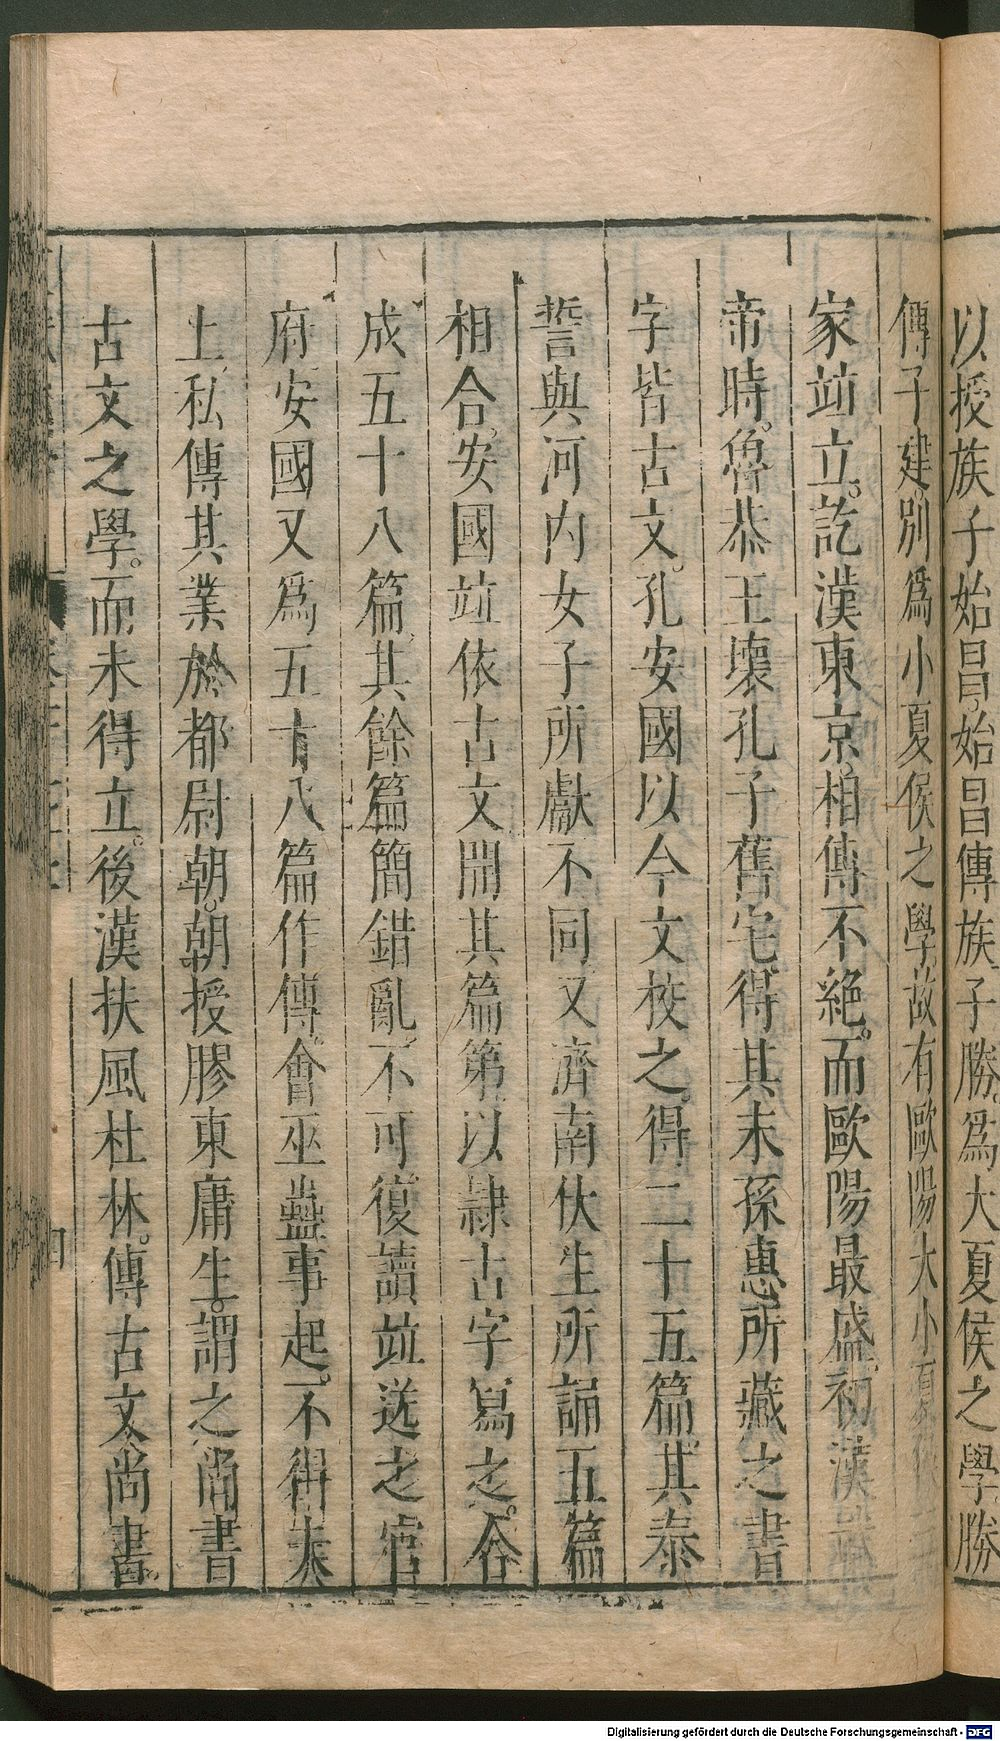 以授族子始昌。始昌傳族子勝。爲大夏侯之學。勝
傳子建。別爲小夏侯之學。故有歐陽大小夏侯
家竝立。訖漢東京。相傳不絕。而歐陽最盛。初漢武
帝時。魯恭王壞孔子舊宅。得其末孫惠所藏之書
字皆古文。孔安國以今文校之。得二十五篇。其泰
誓與河内女子所獻不同。又濟南伏生所誦五篇
相合。安國竝依古文開其篇第以隷古字寫之。合
成五十八篇。其餘篇簡錯亂。不可復讀竝送之官
府。安國又爲五十八篇作傳。會巫蠱事起。不得奏
上。私傳其業於都尉朝。朝授膠東庸生。謂之尚書
古文之學。而未得立。後漢扶風杜林。傳古文尚書。
四
Digitalisierung gefördert durch die Deutsche Forschungsgemeinschaft - DFG